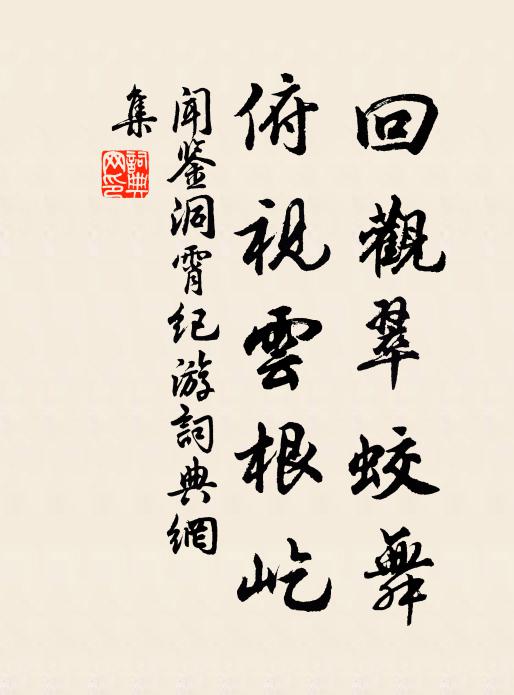 回觀翠蛟舞
俯視雲根屹
聞鉴洞霄纪游詞典網
集
詞典網印